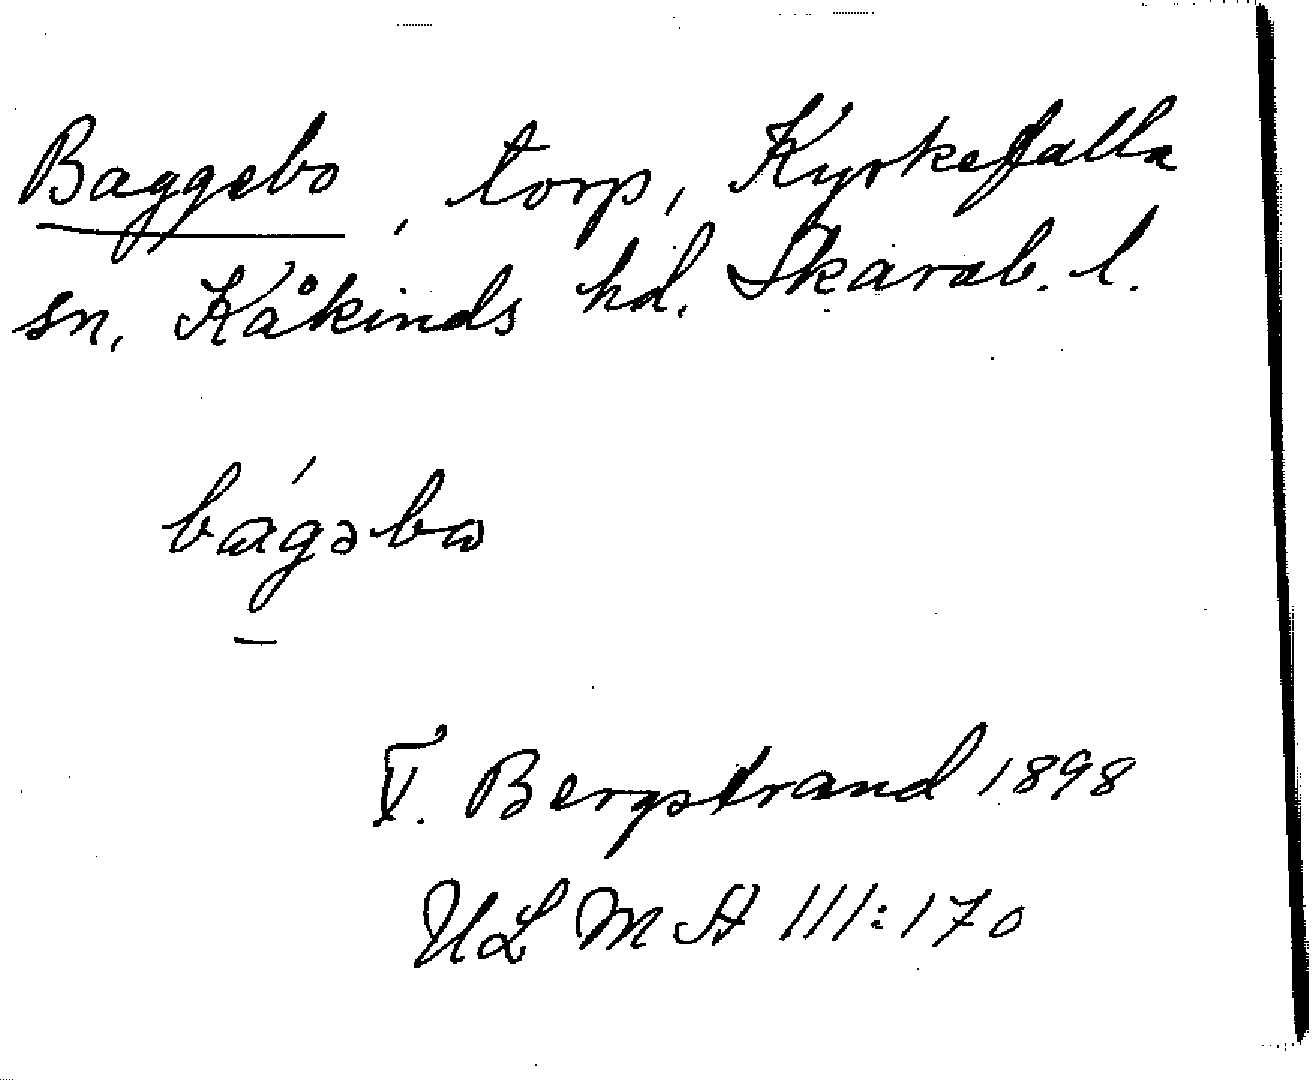 Baggebo, torp, Kyrkefalla
sn, Kåkinds hd. Skarab. l.
bágəbω
V. Bergstrand 1898
ULMA 111:170